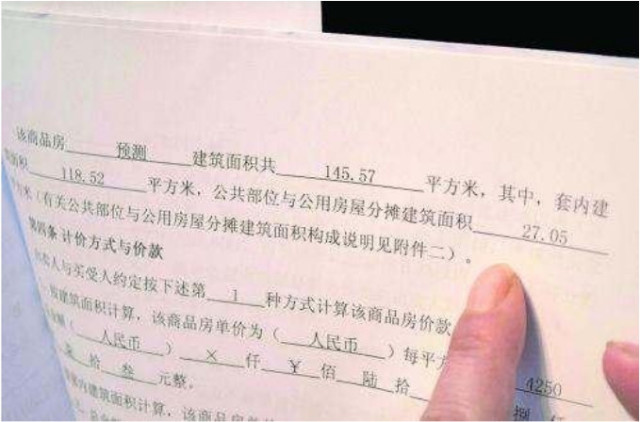 该商品房 预测 建筑面积共 145.57 平方米，其中，套内建
面积 118.52 平方米，公共部位与公用房屋分摊建筑面积 27.05
方米（有关公共部位与公用房屋分摊建筑面积构成说明见附件二）。
第四条 计价方式与价款
卖人与买受人约定按下述第 1 种方式计算该商品房价款
按建筑面积计算，该商品房单价为（人民币）每平方 4250
（人民币） × 仟 ￥ 佰 陆 拾 捌 仟
柒 拾 叁 元整。
内建筑面积计算，该商品房